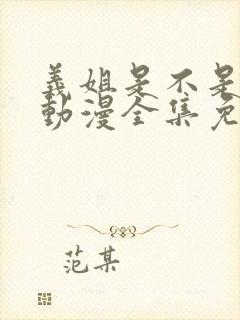 義姐是不是
動漫全集免
范某